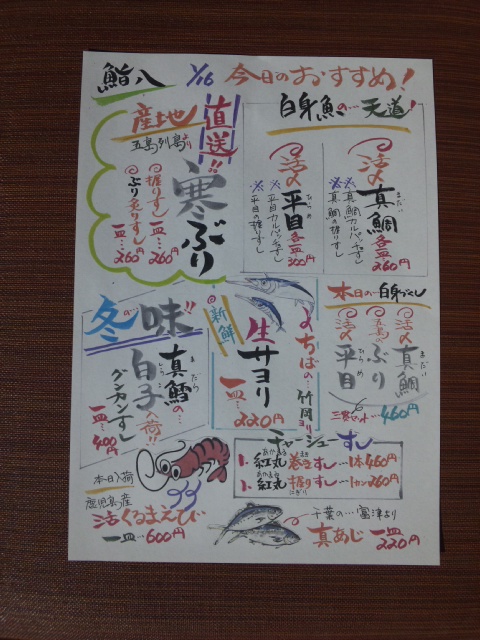 鮨八 1/16 今日のおすすめ!
産地直送!!
五島列島より
寒ぶり
握りずし 一皿…260円
ぶり炙りずし 一皿…260円
白身魚の…天道!
活〆真鯛 各一皿260円
まだい
※真鯛カルパッチョずし
※真鯛の握りずし
活〆平目 各一皿300円
ひらめ
※平目カルパッチョずし
※平目の握りずし
冬の…味!!
真鱈の…
まだら
白子入荷!!
しらこ
グンカンずし
一皿…400円
新鮮
ちばの…竹岡より
生サヨリ
一皿…220円
本日の…白身づくし
活〆真鯛
まだい
五島のぶり
活〆平目
ひらめ
三貫セット…460円
チャーシューずし
1. 紅丸巻きずし…1本460円
あかまる
1. 紅丸握りずし…1カン260円
あかまる
にぎり
本日入荷
鹿児島産
活くるまえび
一皿…600円
千葉の…富津より
真あじ 一皿220円